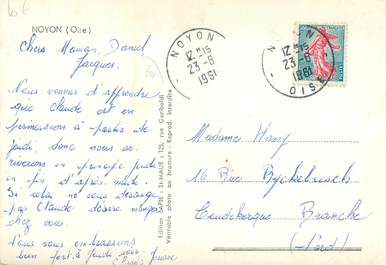 10 €
NOYON (Oise)
Chers Maman, Daniel
Jacques.
Nous venons d'apprendre
que Claude est en
permission à partir de
Jeudi, donc nous ar-
riverons en principe jeudi
en fin d'après-midi.
Si cela ne vous dérange
pas Claude désire manger
chez vous.
Nous vous embrassons
bien fort. à Jeudi soir.
Editions "SAFIE", St-MAUR : 125, rue Garibaldi
Véritable photo au bromure - Reprod. Interdite
NOYON
12 H 15
23-8
1961
NOYON
12 H 15
23-8
1961
OISE
Madame Hary
16 Rue
Coudekerque Branche
(Nord)